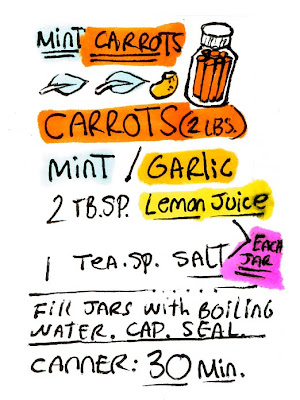 MINT CARROTS
CARROTS (2 LBS.)
MINT / GARLIC
2 TB.SP. Lemon Juice
1 Tea.sp. SALT
EACH JAR
Fill JARS with BOILING
WATER. CAP. SEAL.
CANNER: 30 Min.